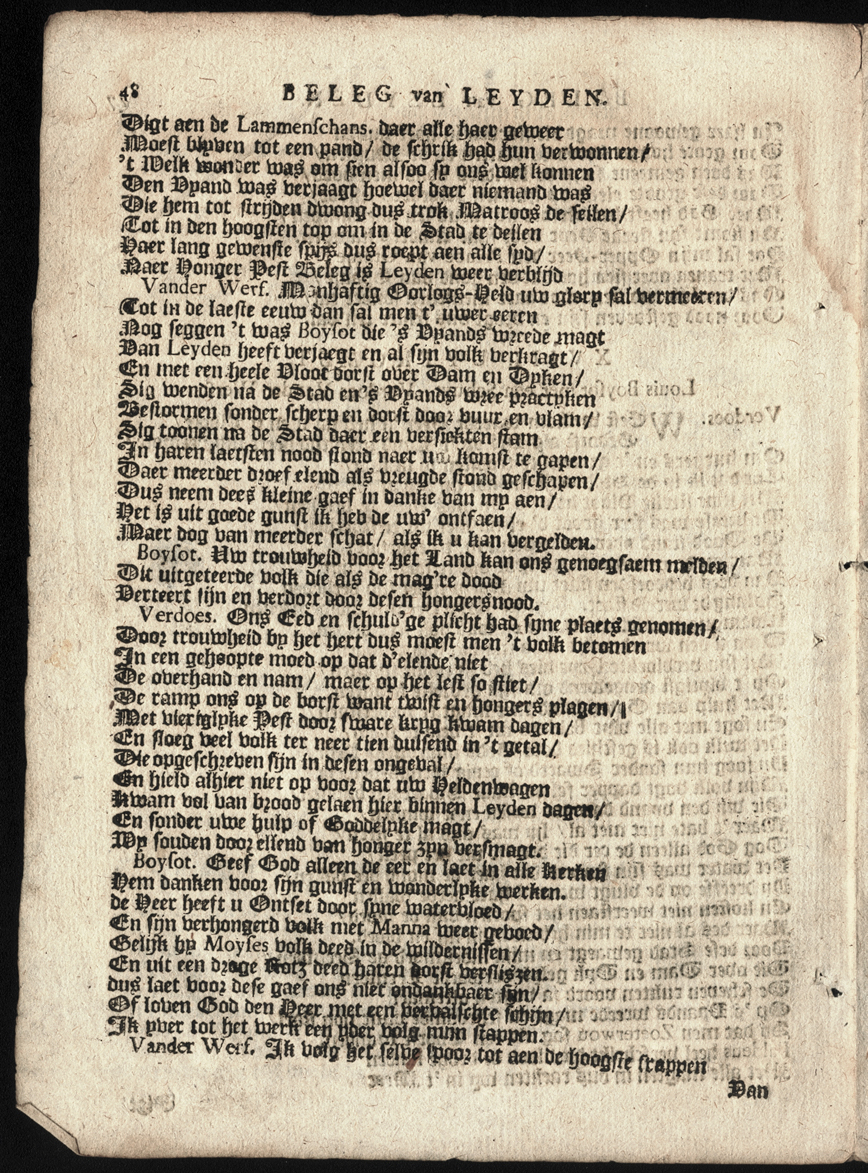 48 BELEG van LEYDEN.
Digt aen de Lammenschans. daer alle haer geweer
Moest blyven tot een pand/ de schrik had hun verwonnen/
't Welk wonder was om sien alsoo sy ons wel konnen
Den Vyand was verjaagt hoewel daer niemand was
Die hem tot strijden dwong dus trok Matroos de seilen/
Tot in den hoogsten top om in de Stad te deilen
Haer lang gewenste spijs dus roept aen alle syd/
Naer Honger Pest Beleg is Leyden weer verblijd
Vander Werf. Manhaftig Oorlogs-Held uw glory sal vermeeren/
Tot in de laeste eeuw dan sal men t' uwer eeren
Nog seggen 't was Boysot die 's Vyands wreede magt
Van Leyden heeft verjaegt en al sijn volk verkragt/
En met een heele Vloot dorst over Dam en Dyken/
Sig wenden na de Stad en's Vyands wree practyken
Bestormen sonder scherp en dorst door vuur en vlam/
Sig toonen na de Stad daer een versiekten stam
In haren laetsten nood stond naer uw komst te gapen/
Daer meerder droef elend als vreugde stond geschapen/
Dus neem dees kleine gaef in danke van my aen/
Het is uit goede gunst ik heb de uw' ontfaen/
Maer dog van meerder schat/ als ik u kan vergelden.
Boysot. Uw trouwheid voor het Land kan ons genoegsaem melden/
Dit uitgeteerde volk die als de mag're dood
Verteert sijn en verdort door desen hongersnood.
Verdoes. Ons Eed en schuld'ge plicht had syne plaets genomen/
Door trouwheid by het hert dus moest men 't volk betomen
In een gehoopte moed op dat d'elende niet
De overhand en nam/ maer op het lest so stiet/
De ramp ons op de borst want twist en hongers plagen/
Met vierighlyke Pest door sware kryg kwam dagen/
En sloeg veel volk ter neer tien duisend in 't getal/
Die opgeschreven sijn in desen ongeval/
En hield alhier niet op voor dat uw Heldenwagen
Kwam vol van brood gelaen hier binnen Leyden dagen/
En sonder uwe hulp of Goddelyke magt/
Wy souden door ellend van honger zyn versmagt.
Boysot. Geef God alleen de eer en laet in alle Kerken
Hem danken voor sijn gunst en wonderlyke werken.
de Heer heeft u Ontset door syne watervloed/
En sijn verhongerd volk met Manna weer gevoed/
Gelijk hy Moyses volk deed in de wildernissen/
En uit een droge Rotz deed haren dorst verslissen.
dus laet voor dese gaef ons niet ondankbaer sijn/
Of loven God den Heer met een vervalschte schijn/
Ik yver tot het werk een yder volg mijn stappen.
Vander Werf. Ik volg het selve spoor tot aen de hoogste trappen
Dan